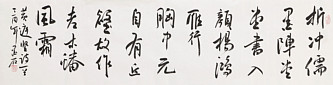 折冲儒
墨陣堂
堂書入
顔楊鴻
雁行
胸中元
自有丘
壑故作
老木蟠
風霜